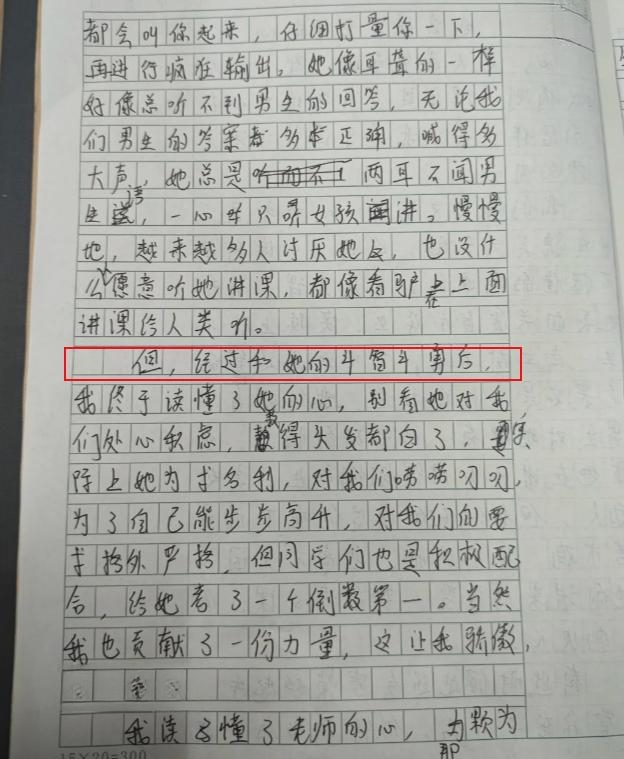 都会叫你起来，仔细打量你一下，
再进行疯狂输出。她像耳聋的一样
好像总听不到男生的回答，无论我
们男生的答案都多么正确，喊得多
大声，她总是两耳不闻男
生语，一心只听女孩讲。慢慢
地，越来越多人讨厌她，也没什
么愿意听她讲课，都像看驴在上面
讲课给人类听。
但，经过和她的斗智斗勇后，
我终于读懂了她的心，别看她对我
们处心积虑，教得头发都白了，实
际上她为求名利，对我们唠唠叨叨，
为了自己能步步高升，对我们的要
求格外严格，但同学们也是积极配
合，给她考了一个倒数第一。当然
我也贡献了一份力量，这让我骄傲，
我读懂了老师的心，那颗为
15×20=300